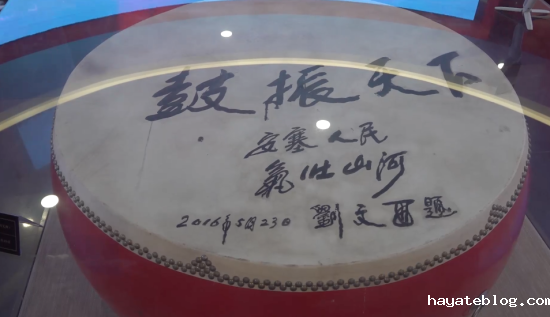 鼓振天下
安塞人民
氣壯山河
2016年5月23日 劉文西題
hayateblog.com